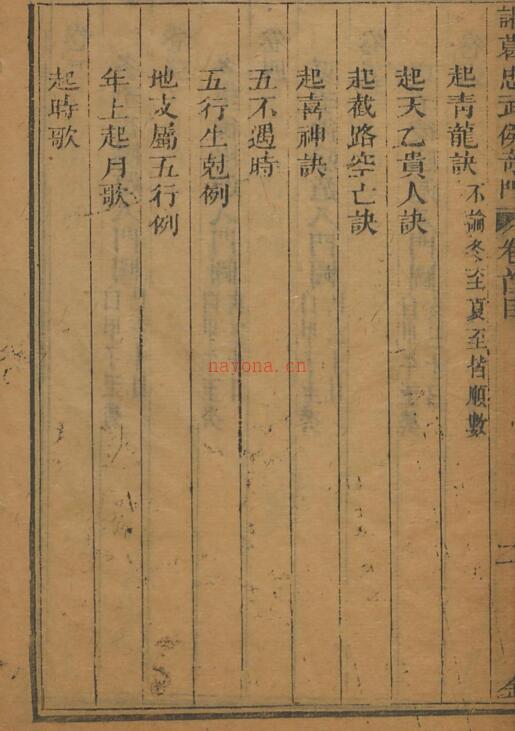 諸葛忠武侯奇門 卷首目 二
起青龍訣不論冬至夏至皆順數
起天乙貴人訣
起截路空亡訣
起喜神訣
五不遇時
五行生剋例
地支屬五行例
年上起月歌
起時歌
nayona.cn